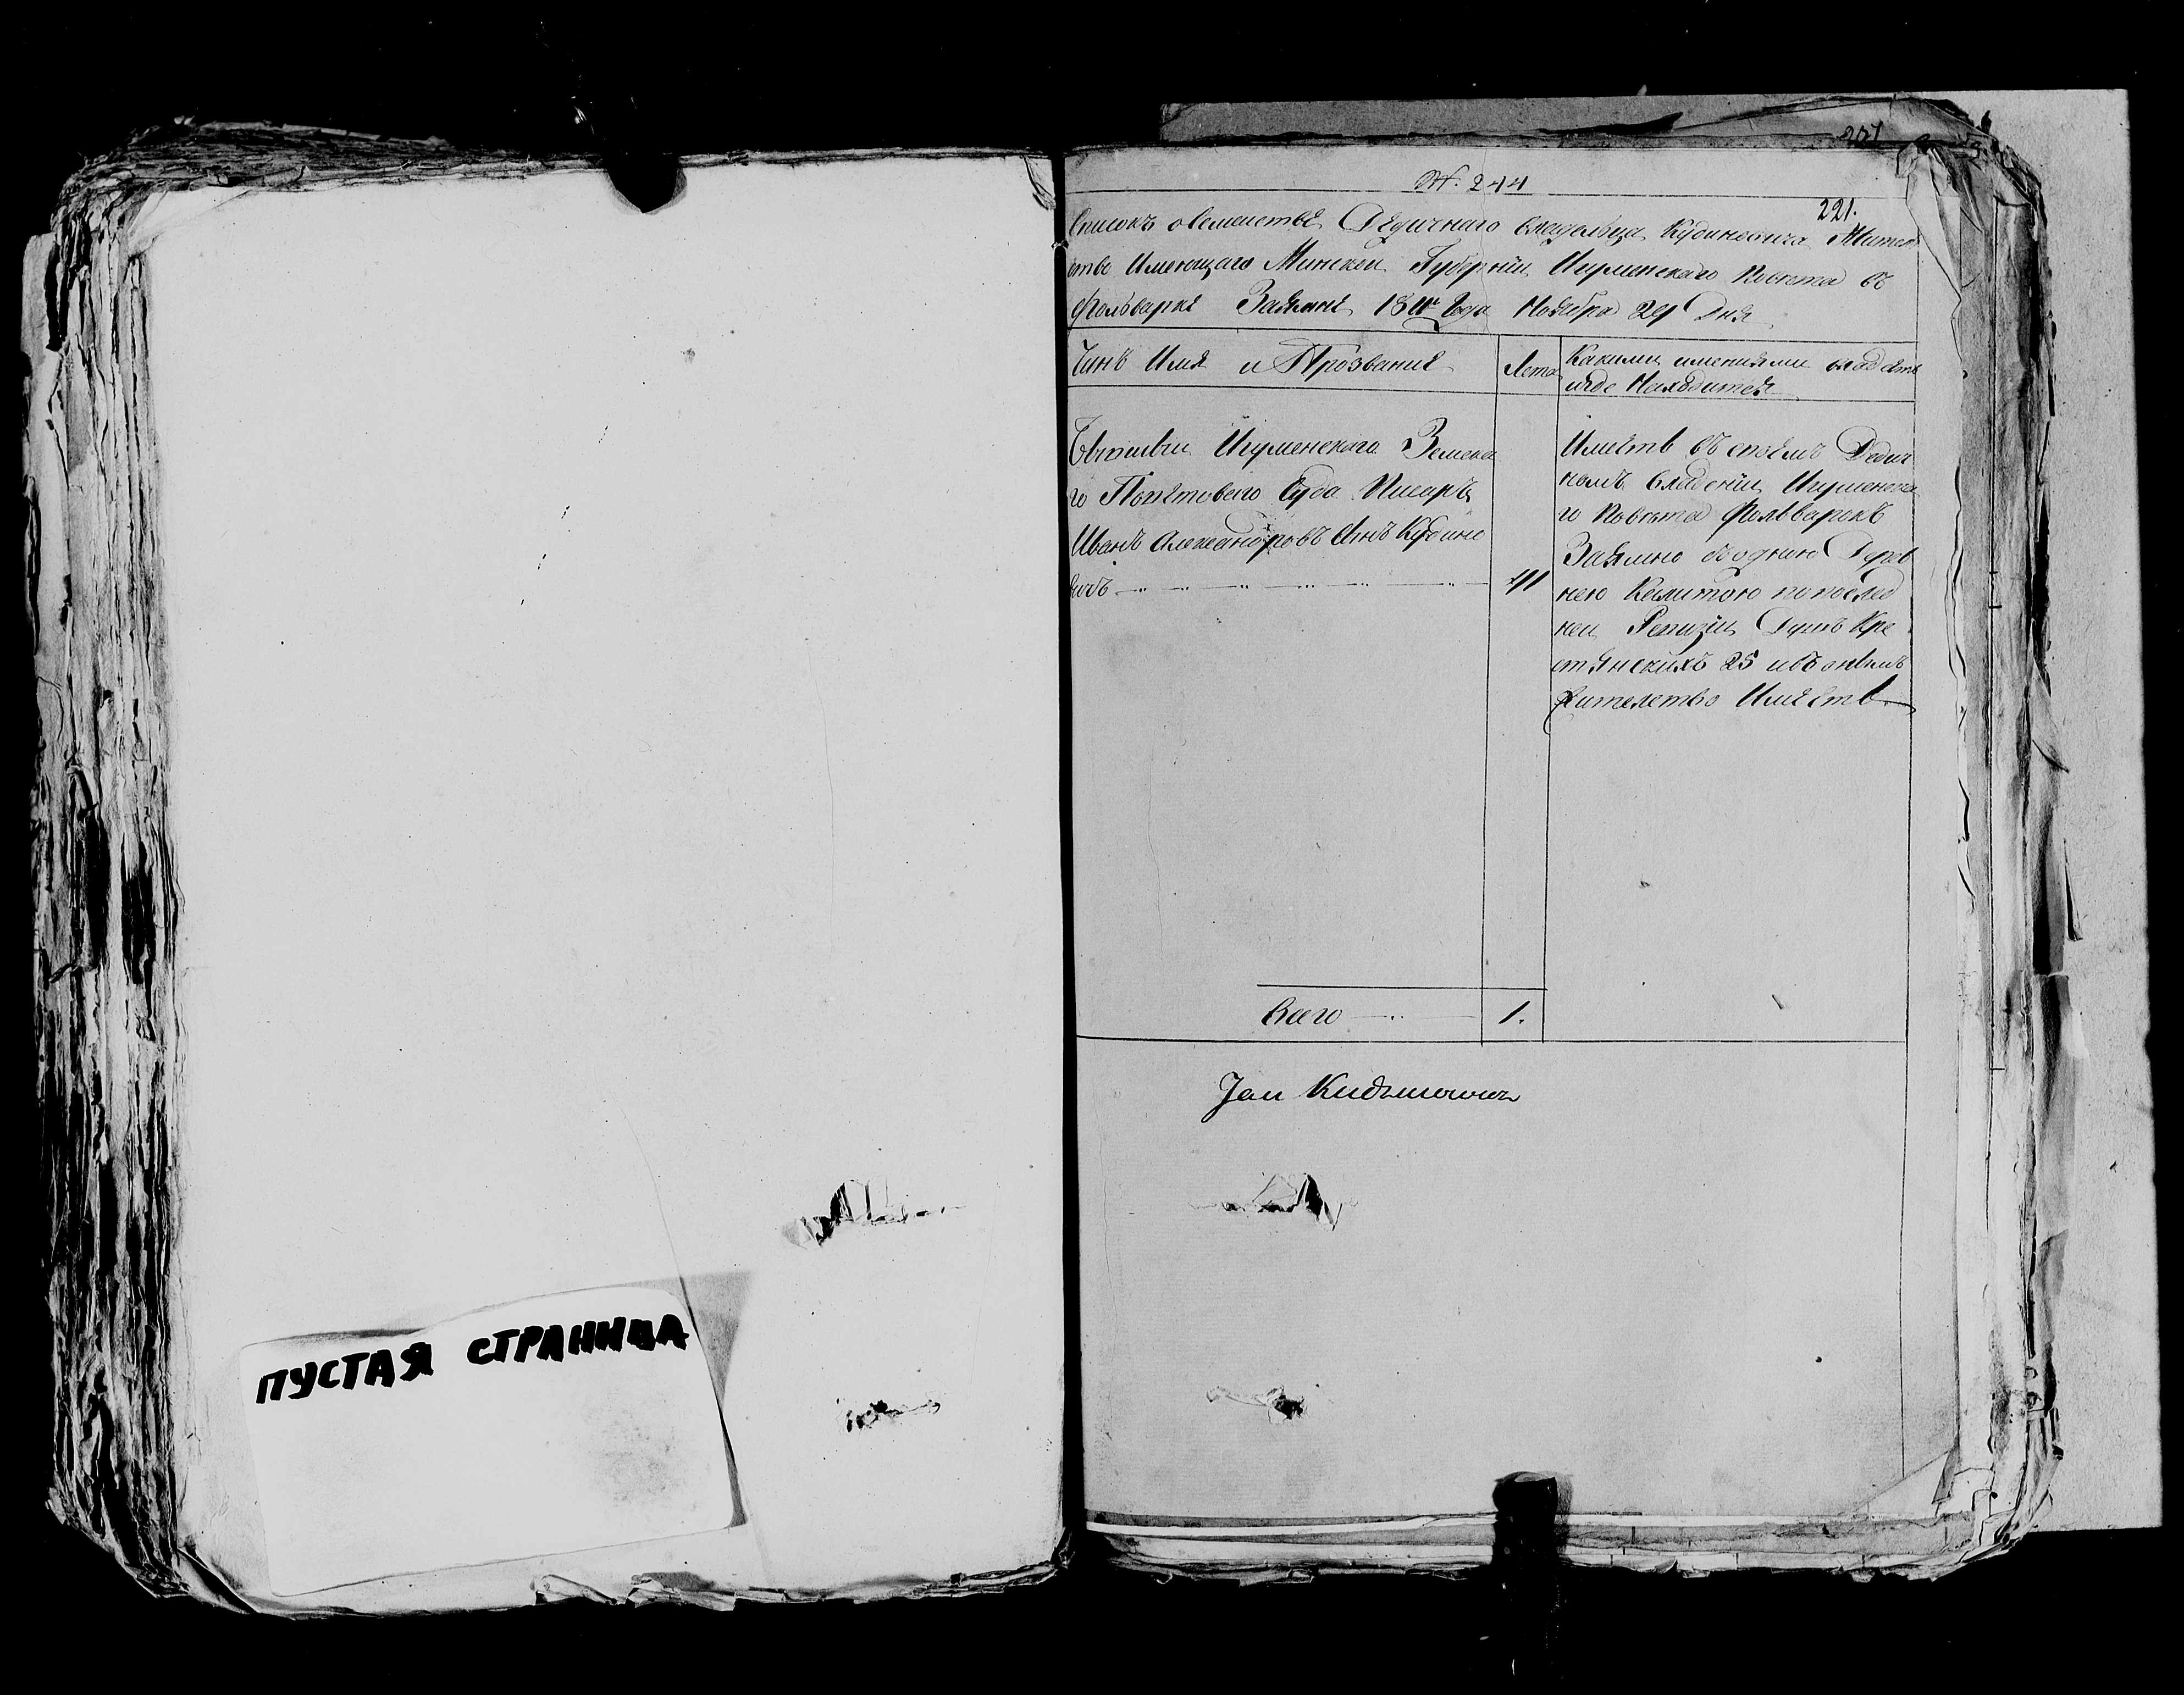 ПУСТАЯ СТРАНИЦА
221
№. 244
221.
Списокъ о Семействе Дедичнаго владельца Кудиневича Жител
ство Имеющаго Минской Губернiи Игуменскаго Повета въ
фольварке 1811го Года Ноября 29 Дня
Чинъ Имя и Прозвание
Лета
Какими имениями владеетъ
игде Находится
Бывшiи Игуменскаго Земска
го Поветоваго Суда Писаръ
Иванъ Александровъ Сынъ Кудине
вичъ
41
Имеетъ въ своемъ Дедич
номъ владенiи Игуменска
го Повета Фольваркъ
съ одною Дерев
нею по послед
ней Ревизiи Душъ Кре
стянскихъ 25 ивъ онемъ
жителство Имеетъ
Всего
1.
Jan Kudinowicz